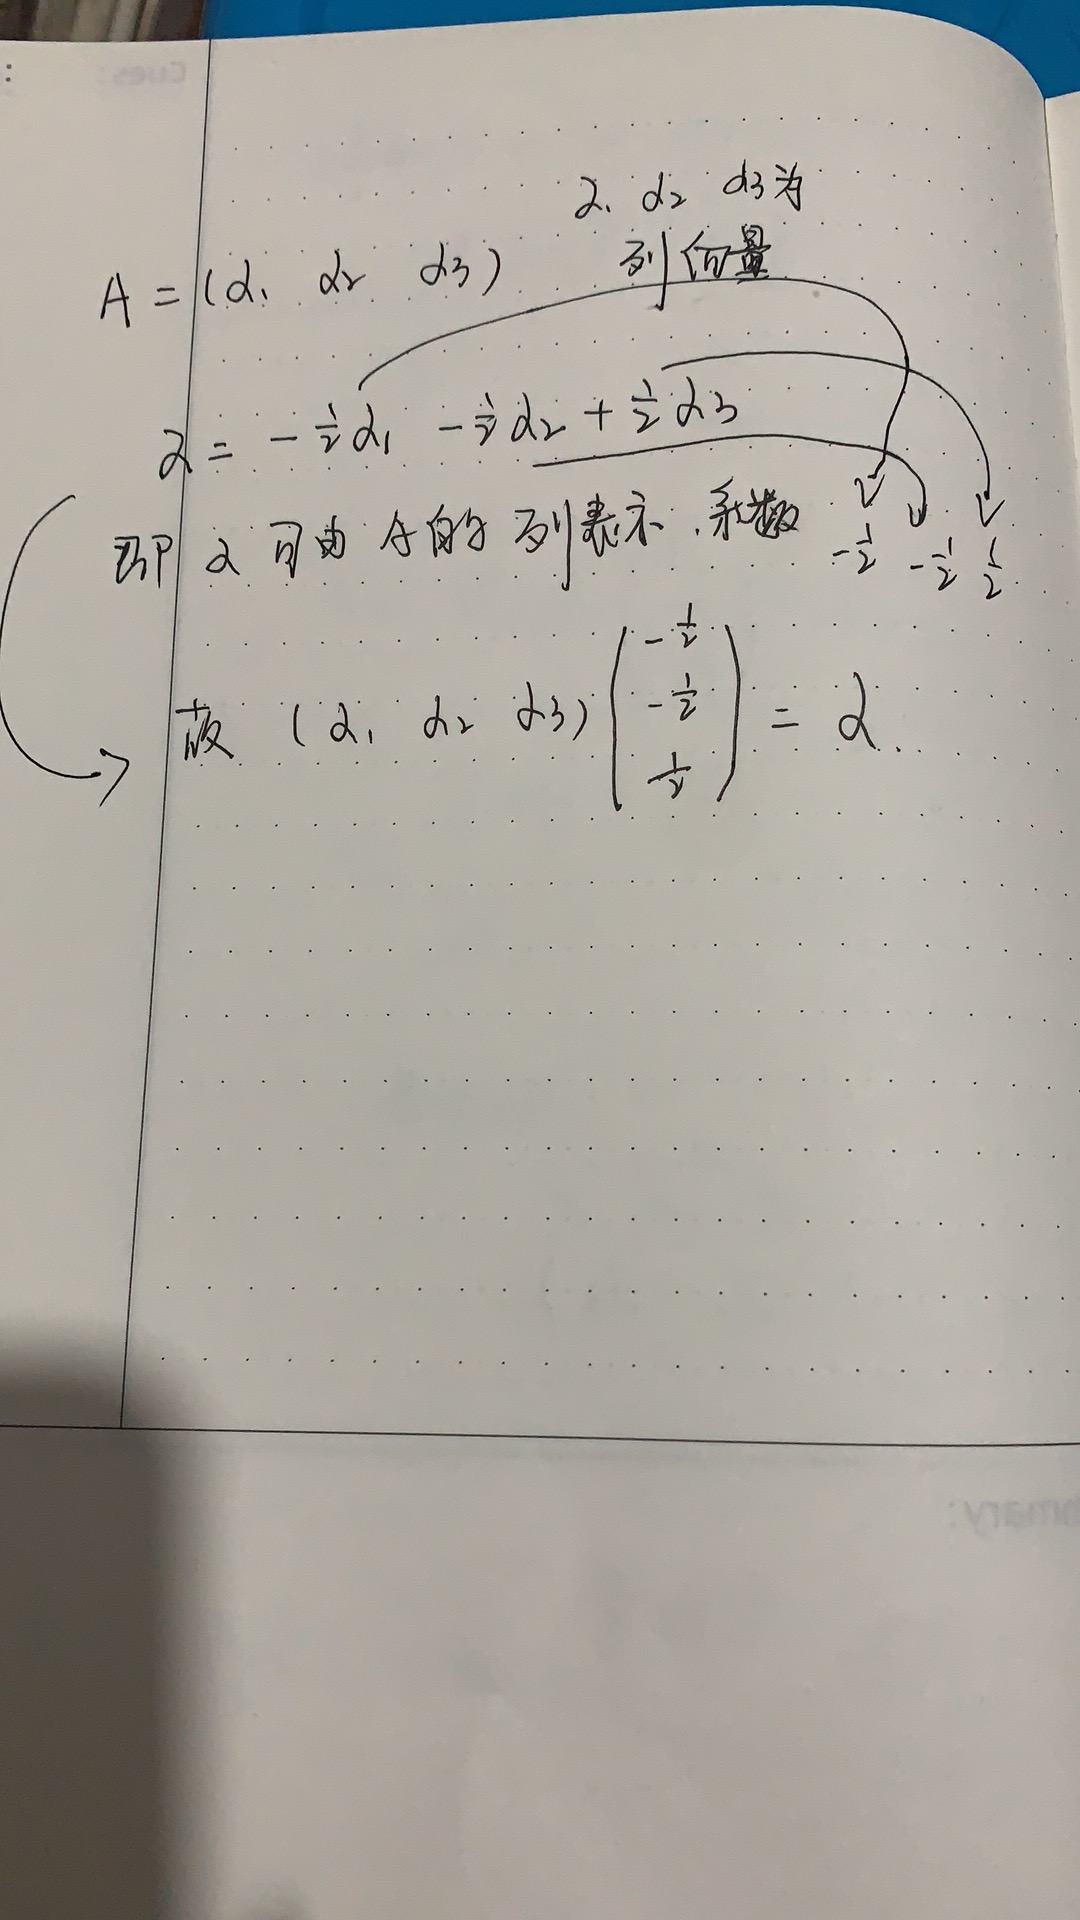 α₁ α₂ α₃为
列向量
A = (α₁ α₂ α₃)
α = -½α₁ -½α₂ + ½α₃
即 α 可由 A的列表示.系数 -½ -½ ½
故 (α₁ α₂ α₃) (-½ -½ ½) = α.